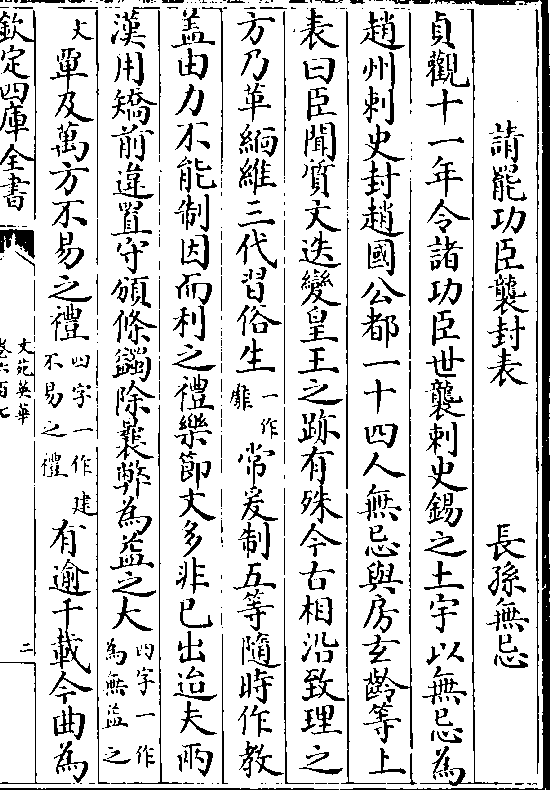 請罷功臣襲封表　長孫無忌
貞觀十一年令諸功臣世襲刺史錫之土宇以無忌為
趙州刺史封趙國公都一十四人無忌與房玄齡等上
表曰臣聞質文迭變皇王之跡有殊今古相沿致理之
方乃革緬維三代習俗生一作靡常爰制五等隨時作教
盖由力不能制因而利之禮樂節文多非已出迨夫兩
漢用矯前違置守頒條蠲除曩弊為益之大四字一作為無益之
文覃及萬方不易之禮四字一作建不易之禮有逾千載今曲為
欽定四庫全書
文苑英華
卷六百七
二